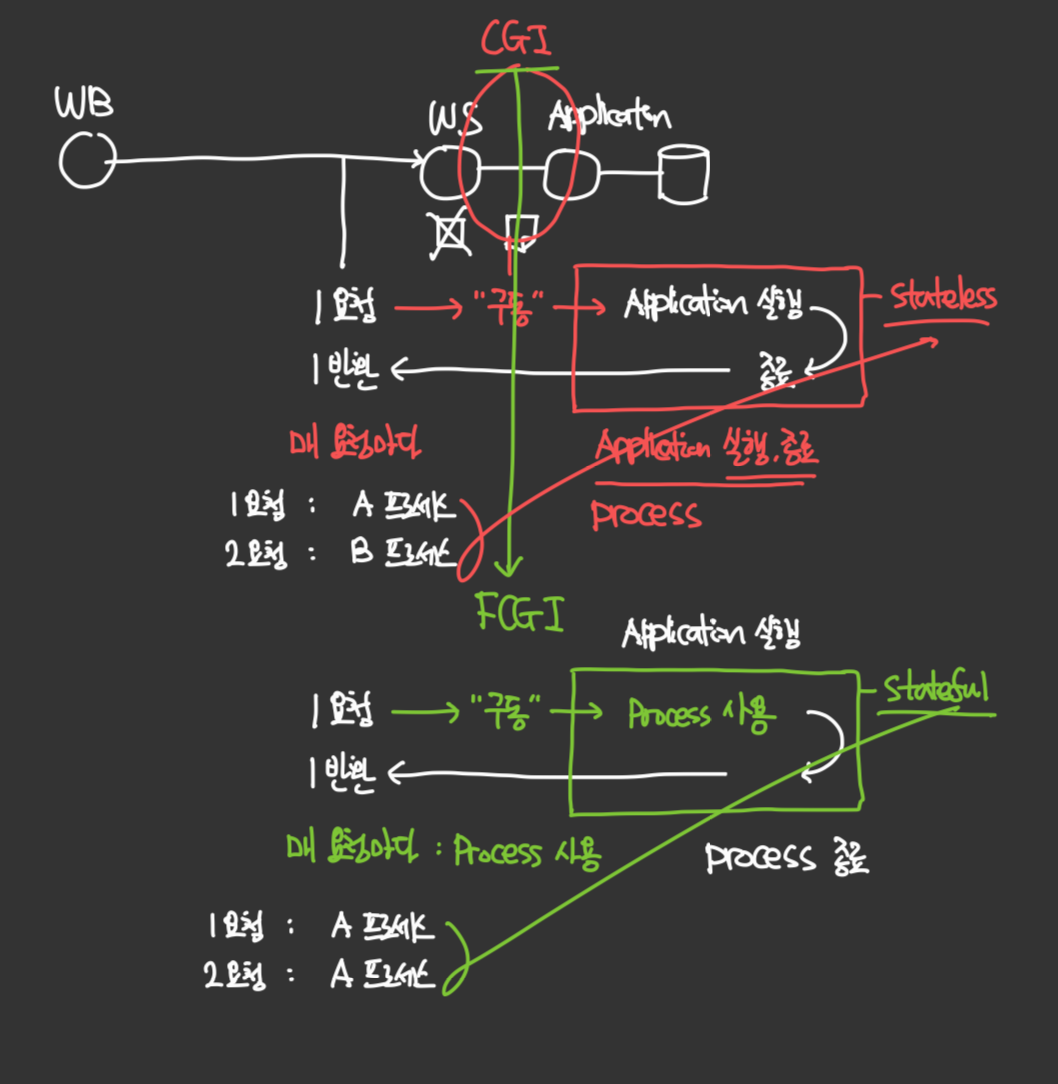 CGI
WB
WS Applicatin
1 요청 "구동" Application 실행 Stateless
1 반환 종료
매 요청마다 Application 실행, 종료
process
1요청 : A 프로세스
2요청 : B 프로세스
FCGI
Application 실행
1 요청 "구동" Process 사용 Stateful
1 반환
매 요청마다 : Process 사용 process 종료
1요청 : A 프로세스
2요청 : A 프로세스